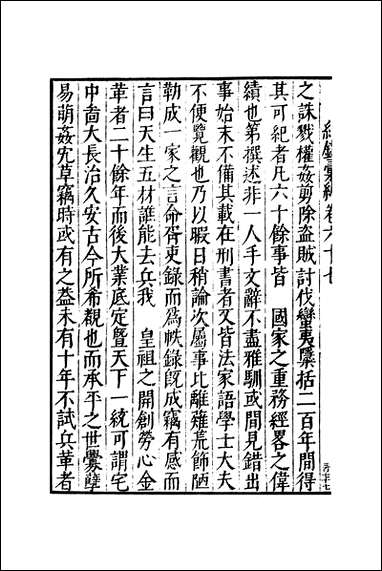 紀錄彙編卷六十七
之誅戮權姦剪除盜賊討伐蠻夷檃括二百年間得
其可紀者凡六十餘事皆　國家之重務經畧之偉
績也第撰述非一人手文辭不盡雅馴或間見錯出
事始末不備其載在刑書者又皆法家語學士大夫
不便覽觀也乃以暇日稍論次屬事比離薙荒飾陋
勒成一家之言命胥吏錄而爲帙錄旣成竊有感而
言曰天生五材誰能去兵我　皇祖之開創勞心金
革者二十餘年而後大業底定曁天下一統可謂宅
中啚大長治久安古今所希覯也而承平之世釁孽
易萌姦宄草竊時或有之葢未有十年不試兵革者